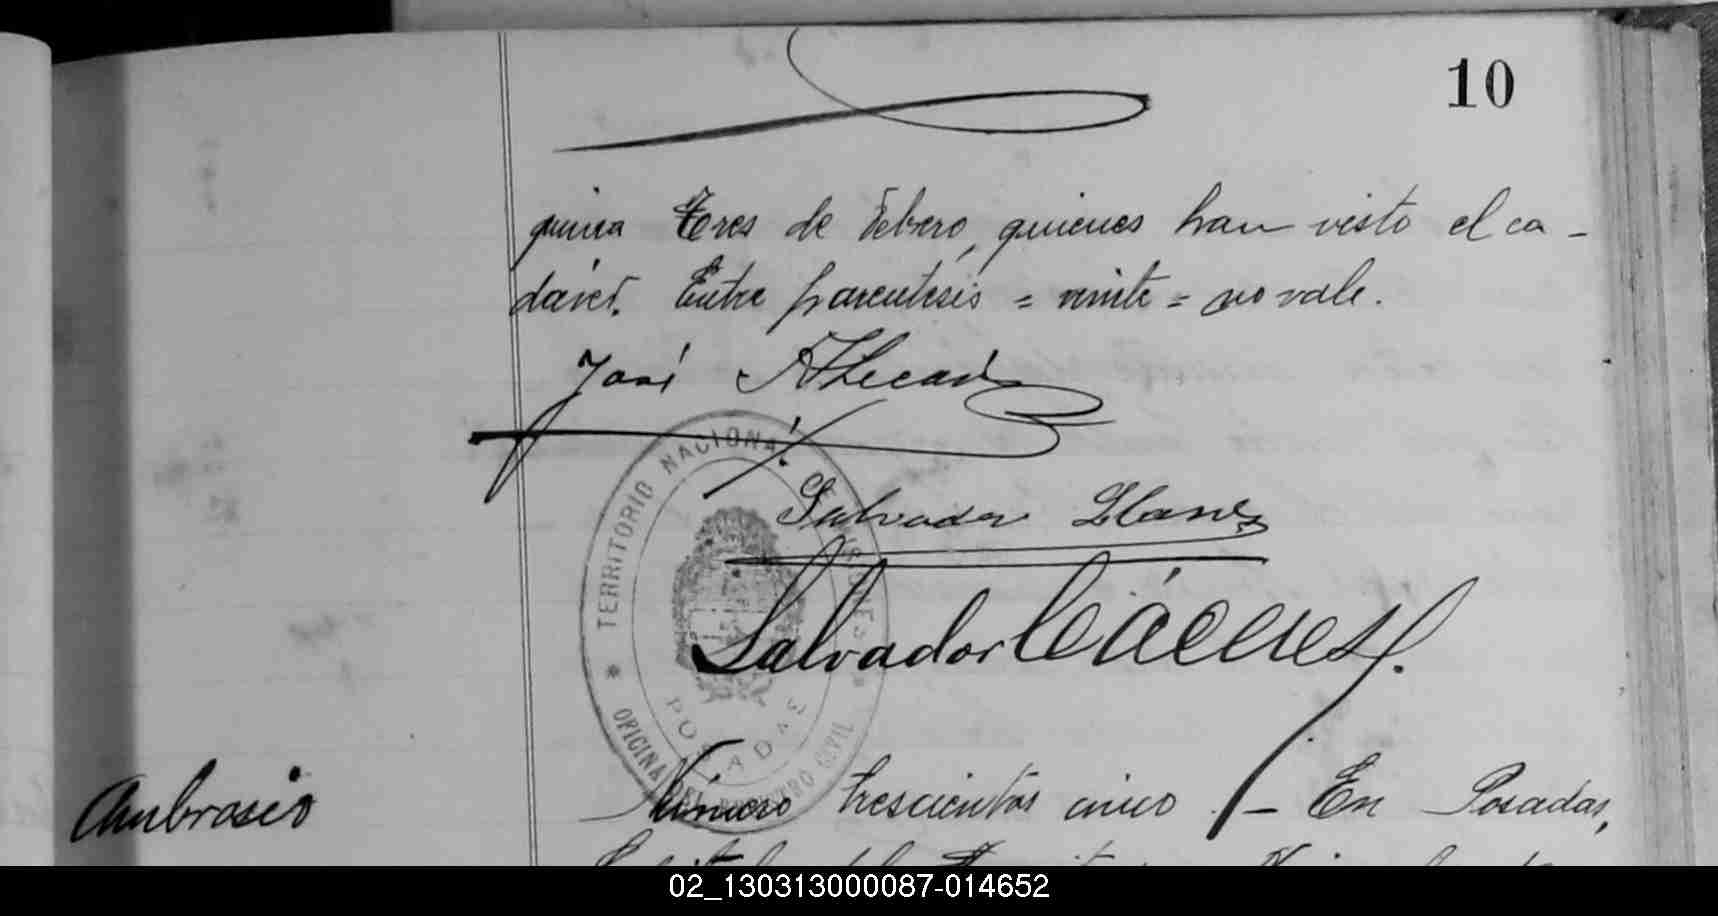 10
quina Tres de Febrero, quienes han visto el ca-
dáver. Entre parentesis = veinte = no vale.
José
Salvador Llanes
Salvador Cáceres
TERRITORIO NACIONAL DE MISIONES
OFICINA DEL REGISTRO CIVIL
POSADAS
Ambrosio
Número trescientos cinco. - En Posadas,
02_130313000087-014652